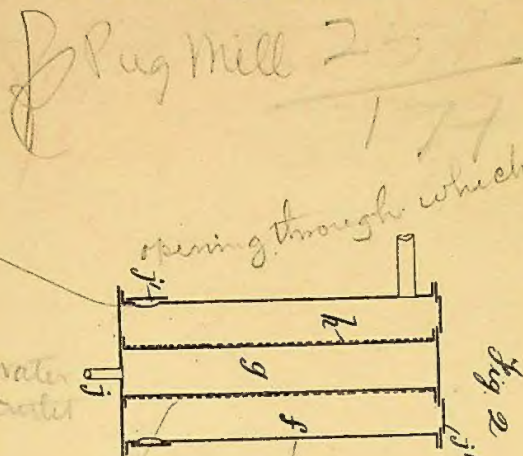 Pug Mill
opening through which
j'
h
g
f
j
Fig. 2
j"
water
outlet